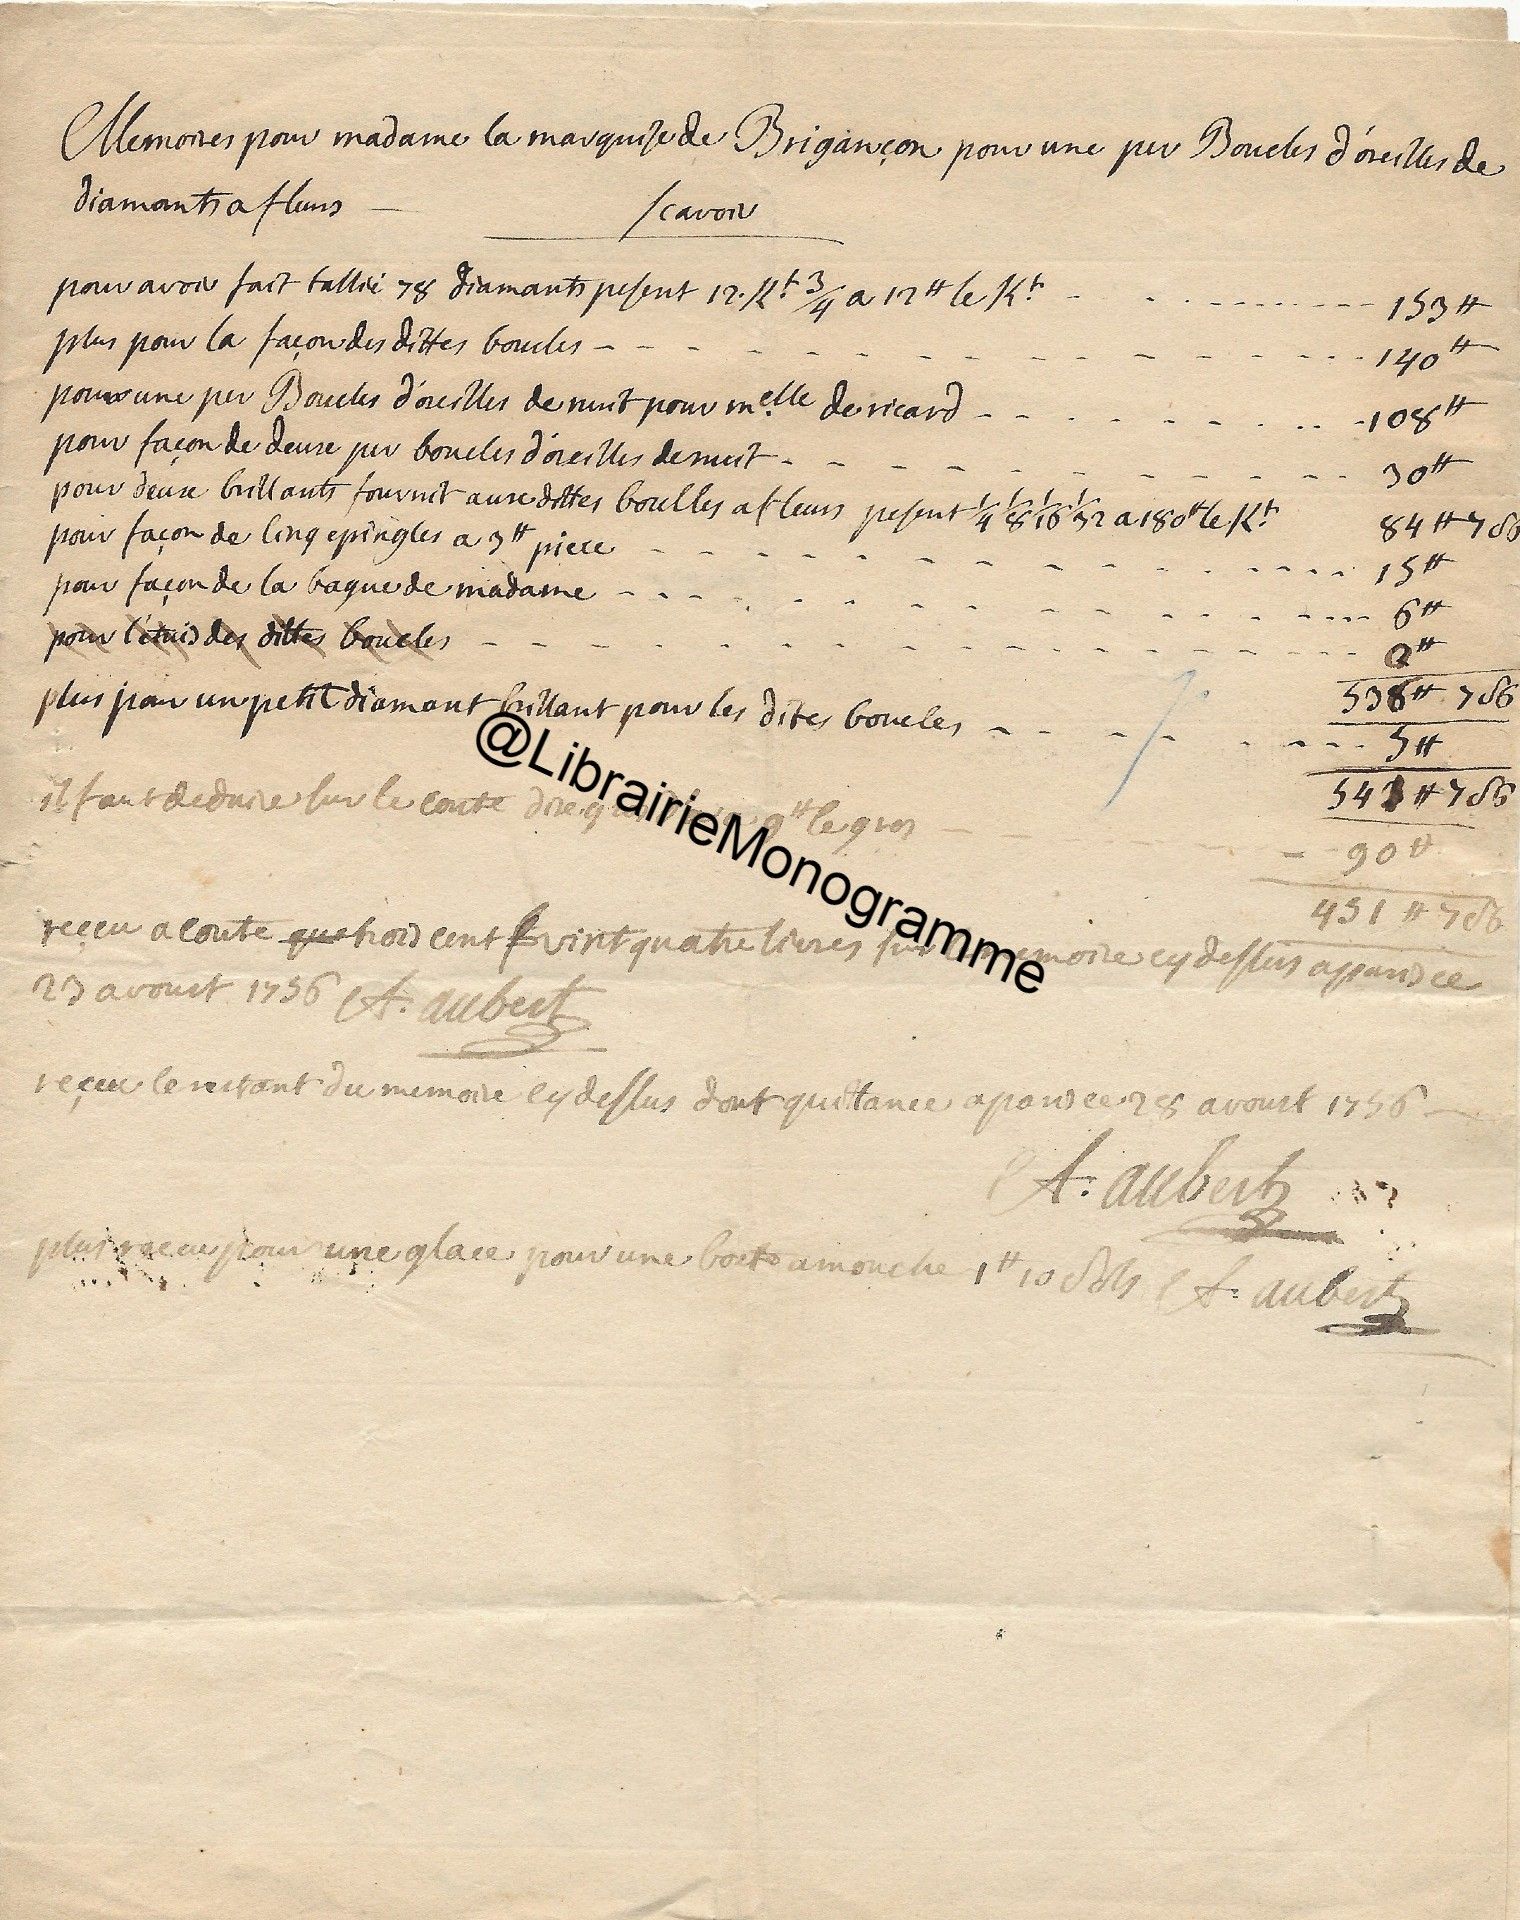 Memoires pour madame la marquise de Brigançon pour une per Boucles d'oreilles de
diamants a fleurs — scavoir
pour avoir fait tallié 78 diamants pesent 12. Kt 3/4 a 12 ₶ le Kt - - - - - 153 ₶
plus pour la façon des dittes boucles - - - - - 140 ₶
pour une per Boucles d'oreilles de nuit pour melle de ricard - - - - - 108 ₶
pour façon de deuxe per boucles d'oreilles de nuit - - - - - 30 ₶
pour deuxe brillants fournit auxe dittes boucles a fleurs pesent 1/4 1/8 1/16 1/32 a 180 ₶ le Kt 84 ₶ 7 s 6
pour façon de cinq epingles a 3 ₶ piece - - - - - 15 ₶
pour façon de la bague de madame - - - - - 6 ₶
pour l'étuis des dittes boucles - - - - - 0 ₶
536 ₶ 7 s 6
plus pour un petit diamant brillant pour les dites boucles - - - - - 5 ₶
541 ₶ 7 s 6
il faut deduire sur le conte d'or 9 ₶ le gros - - 90 ₶
451 ₶ 7 s 6
reçeu a conte que trois cent vint quatre livres sur le memoire cy dessus a paris ce
23 avoust 1756 A. aubert
reçeu le restant du memoire cy dessus dont quittance a paris ce 28 avoust 1756
A. aubert
plus reçeu pour une glace pour une boete a mouche 1 ₶ 10 sols A. aubert
@LibrairieMonogramme